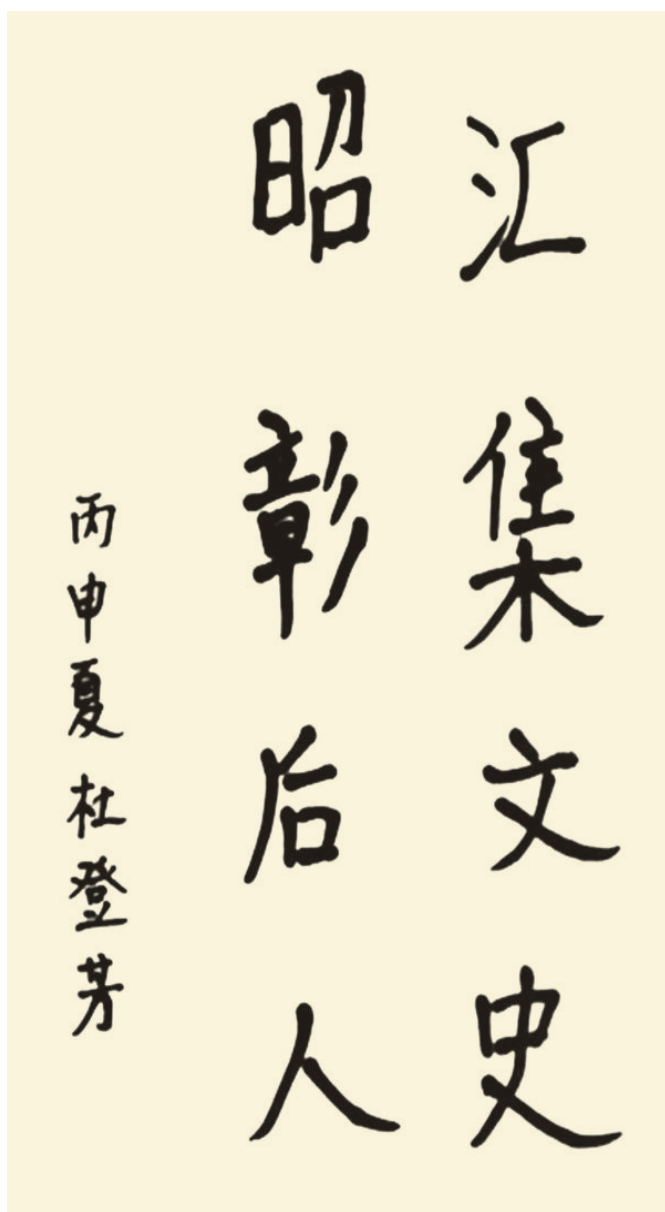 汇集文史
昭彰后人
丙申夏杜登芳